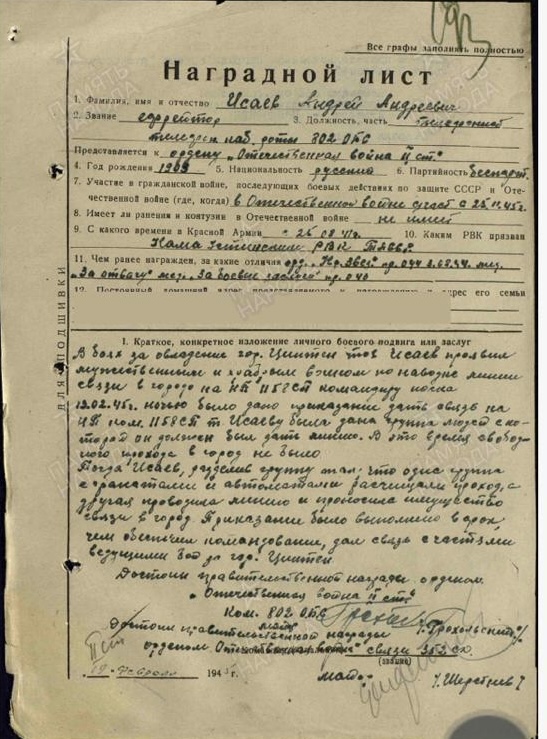 Все графы заполнять полностью
Наградной лист
1. Фамилия, имя и отчество Исаев Андрей Андреевич
2. Звание ефрейтор 3. Должность, часть телефонист
телефон. каб. роты 802 ОБС
Представляется к ордену „Отечественная война II ст."
4. Год рождения 1909 5. Национальность русский 6. Партийность беспарт.
7. Участие в гражданской войне, последующих боевых действиях по защите СССР и Оте-
чественной войне (где, когда) в Отечественной войне участ. с
8. Имеет ли ранения и контузии в Отечественной войне не имеет
9. С какого времени в Красной Армии с 26.08.41г. 10. Каким РВК призван
РВК
11. Чем ранее награжден, за какие отличия орд. мед.
„За отвагу" мед. „За боевые заслуги" пр. 040
12. Постоянный домашний адрес представляемого к награждению и адрес его семьи
ДЛЯ ПОДШИВКИ
I. Краткое, конкретное изложение личного боевого подвига или заслуг
В боях за овладение гор. Цинтен тов Исаев проявил
мужественным и храбрым воином по наводке линии
связи в городе на НП 1158СП командиру полка
13.02.45г. ночью было дано приказание дать связь на
НП ком. 1158СП т. Исаеву была дана группа людей с ко-
торой он должен был дать линию. В это время свобод-
ного прохода в город не было
Тогда Исаев, разделив группу так: что одна группа
с гранатами и автоматами расчищала проход, а
другая проводила линию и проносила имущество
связи в город Приказание было выполнено в срок
чем обеспечил командование, дал связь с частями
ведущими бой за гор. Цинтен
Достоин правительственной награды орденом
„Отечественная война II ст"
Ком. 802 ОБС
майор /Грохольский/
Достоин правительственной награды
орденом „Отечественная война" связи 353 сд
(звание)
18 февраля 1945г. майор /Шерстнев/